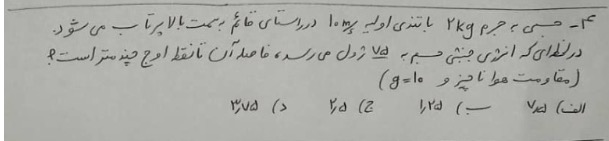 ۴- جسمی به جرم ۲kg با تندی اولیه ۱۰m/s در راستای قائم به سمت بالا پرتاب می شود.
در لحظه ای که انرژی جنبشی جسم به ۷۵ ژول می رسد، فاصله آن تا نقطه اوج چند متر است؟
(مقاومت هوا ناچیز و g=۱۰)
الف) ۷/۵ ب) ۱/۲۵ ج) ۲/۵ د) ۳/۷۵